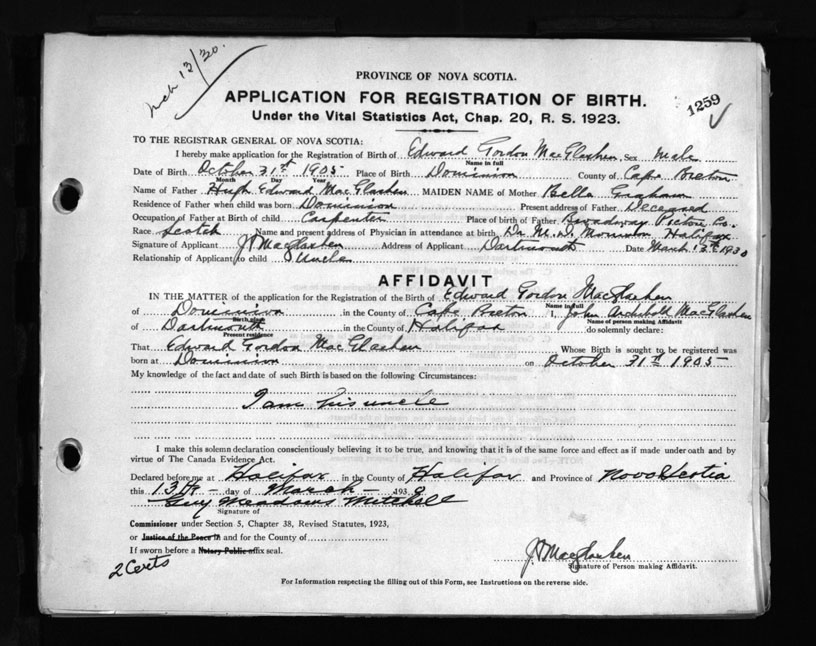 Mch 13/30.
PROVINCE OF NOVA SCOTIA.
APPLICATION FOR REGISTRATION OF BIRTH.
1259
Under the Vital Statistics Act, Chap. 20, R. S. 1923.
TO THE REGISTRAR GENERAL OF NOVA SCOTIA:
I hereby make application for the Registration of Birth of Edward Gordon MacGlashen Sex male
Name in full
Date of Birth October 31st 1905 Place of Birth Dominion County of Cape Breton
Month Day Year
Name of Father Hugh Edward MacGlashen MAIDEN NAME of Mother Bella Graham
Residence of Father when child was born Dominion Present address of Father Deceased
Occupation of Father at Birth of child Carpenter Place of birth of Father Broadway Pictou Co.
Race Scotch Name and present address of Physician in attendance at birth Dr. M. D. Morrison Halifax
Signature of Applicant J A MacGlashen Address of Applicant Dartmouth Date March 13th 1930
Relationship of Applicant to child Uncle
AFFIDAVIT
IN THE MATTER of the application for the Registration of the Birth of Edward Gordon MacGlashen
Name in full
of Dominion in the County of Cape Breton I, John Archibald MacGlashen
Birth place Name of person making Affidavit
of Dartmouth in the County of Halifax do solemnly declare:
Present residence
That Edward Gordon MacGlashen Whose Birth is sought to be registered was
born at Dominion on October 31st 1905
My knowledge of the fact and date of such Birth is based on the following Circumstances:
I am his uncle
I make this solemn declaration conscientiously believing it to be true, and knowing that it is of the same force and effect as if made under oath and by
virtue of The Canada Evidence Act.
Declared before me at Halifax in the County of Halifax and Province of Nova Scotia
this 13th day of March 1930
Guy Meadows Mitchell
Signature of
Commissioner under Section 5, Chapter 38, Revised Statutes, 1923,
or Justice of the Peace in and for the County of
If sworn before a Notary Public affix seal.
2 Certs
J A MacGlashen
Signature of Person making Affidavit.
For Information respecting the filling out of this Form, see Instructions on the reverse side.